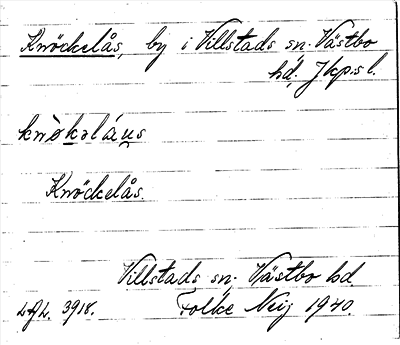 Knöckelås, by i Villstads sn. Västbo
hd. Jkp:s l.
knø̀kəláus
Knöckelås.
Villstads sn. Västbo hd.
LAL. 3918. Folke Neij 1940.